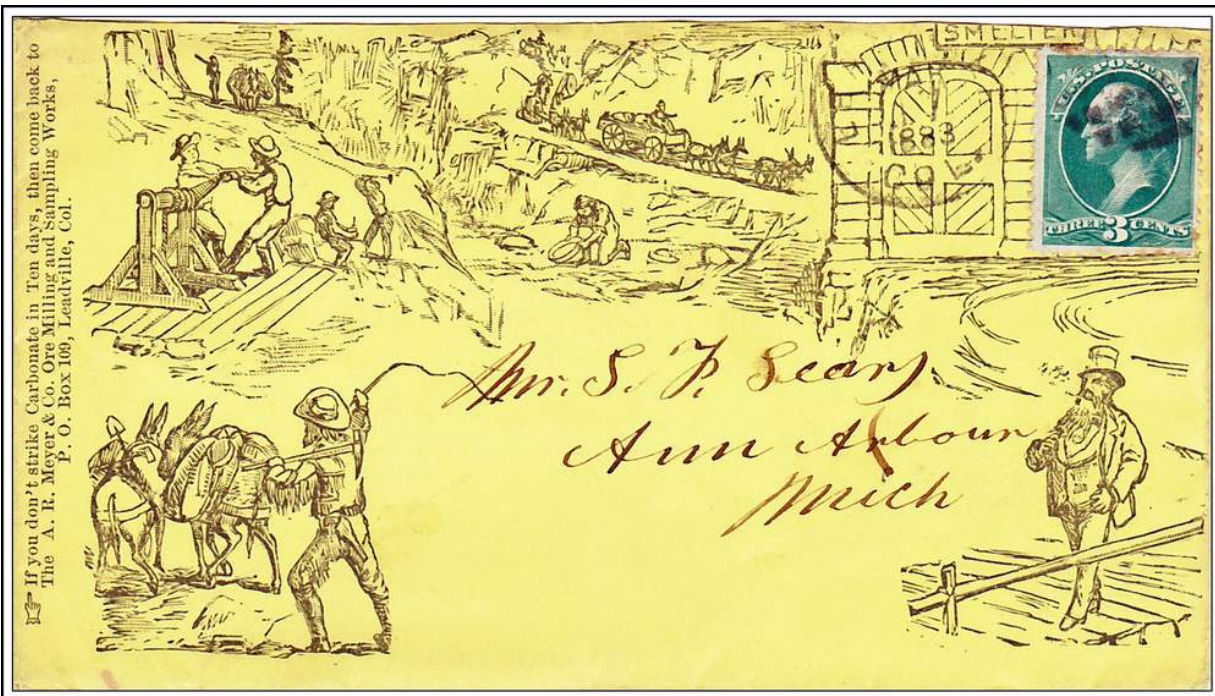 If you don't strike Carbonate in Ten days, then come back to
The A. R. Meyer & Co. Ore Milling and Sampling Works,
P. O. Box 109, Leadville, Col.
SMELTER
MAY
1883
COL.
U.S. POSTAGE
THREE 3 CENTS
Mr. S. F. Sears
Ann Arbour
Mich